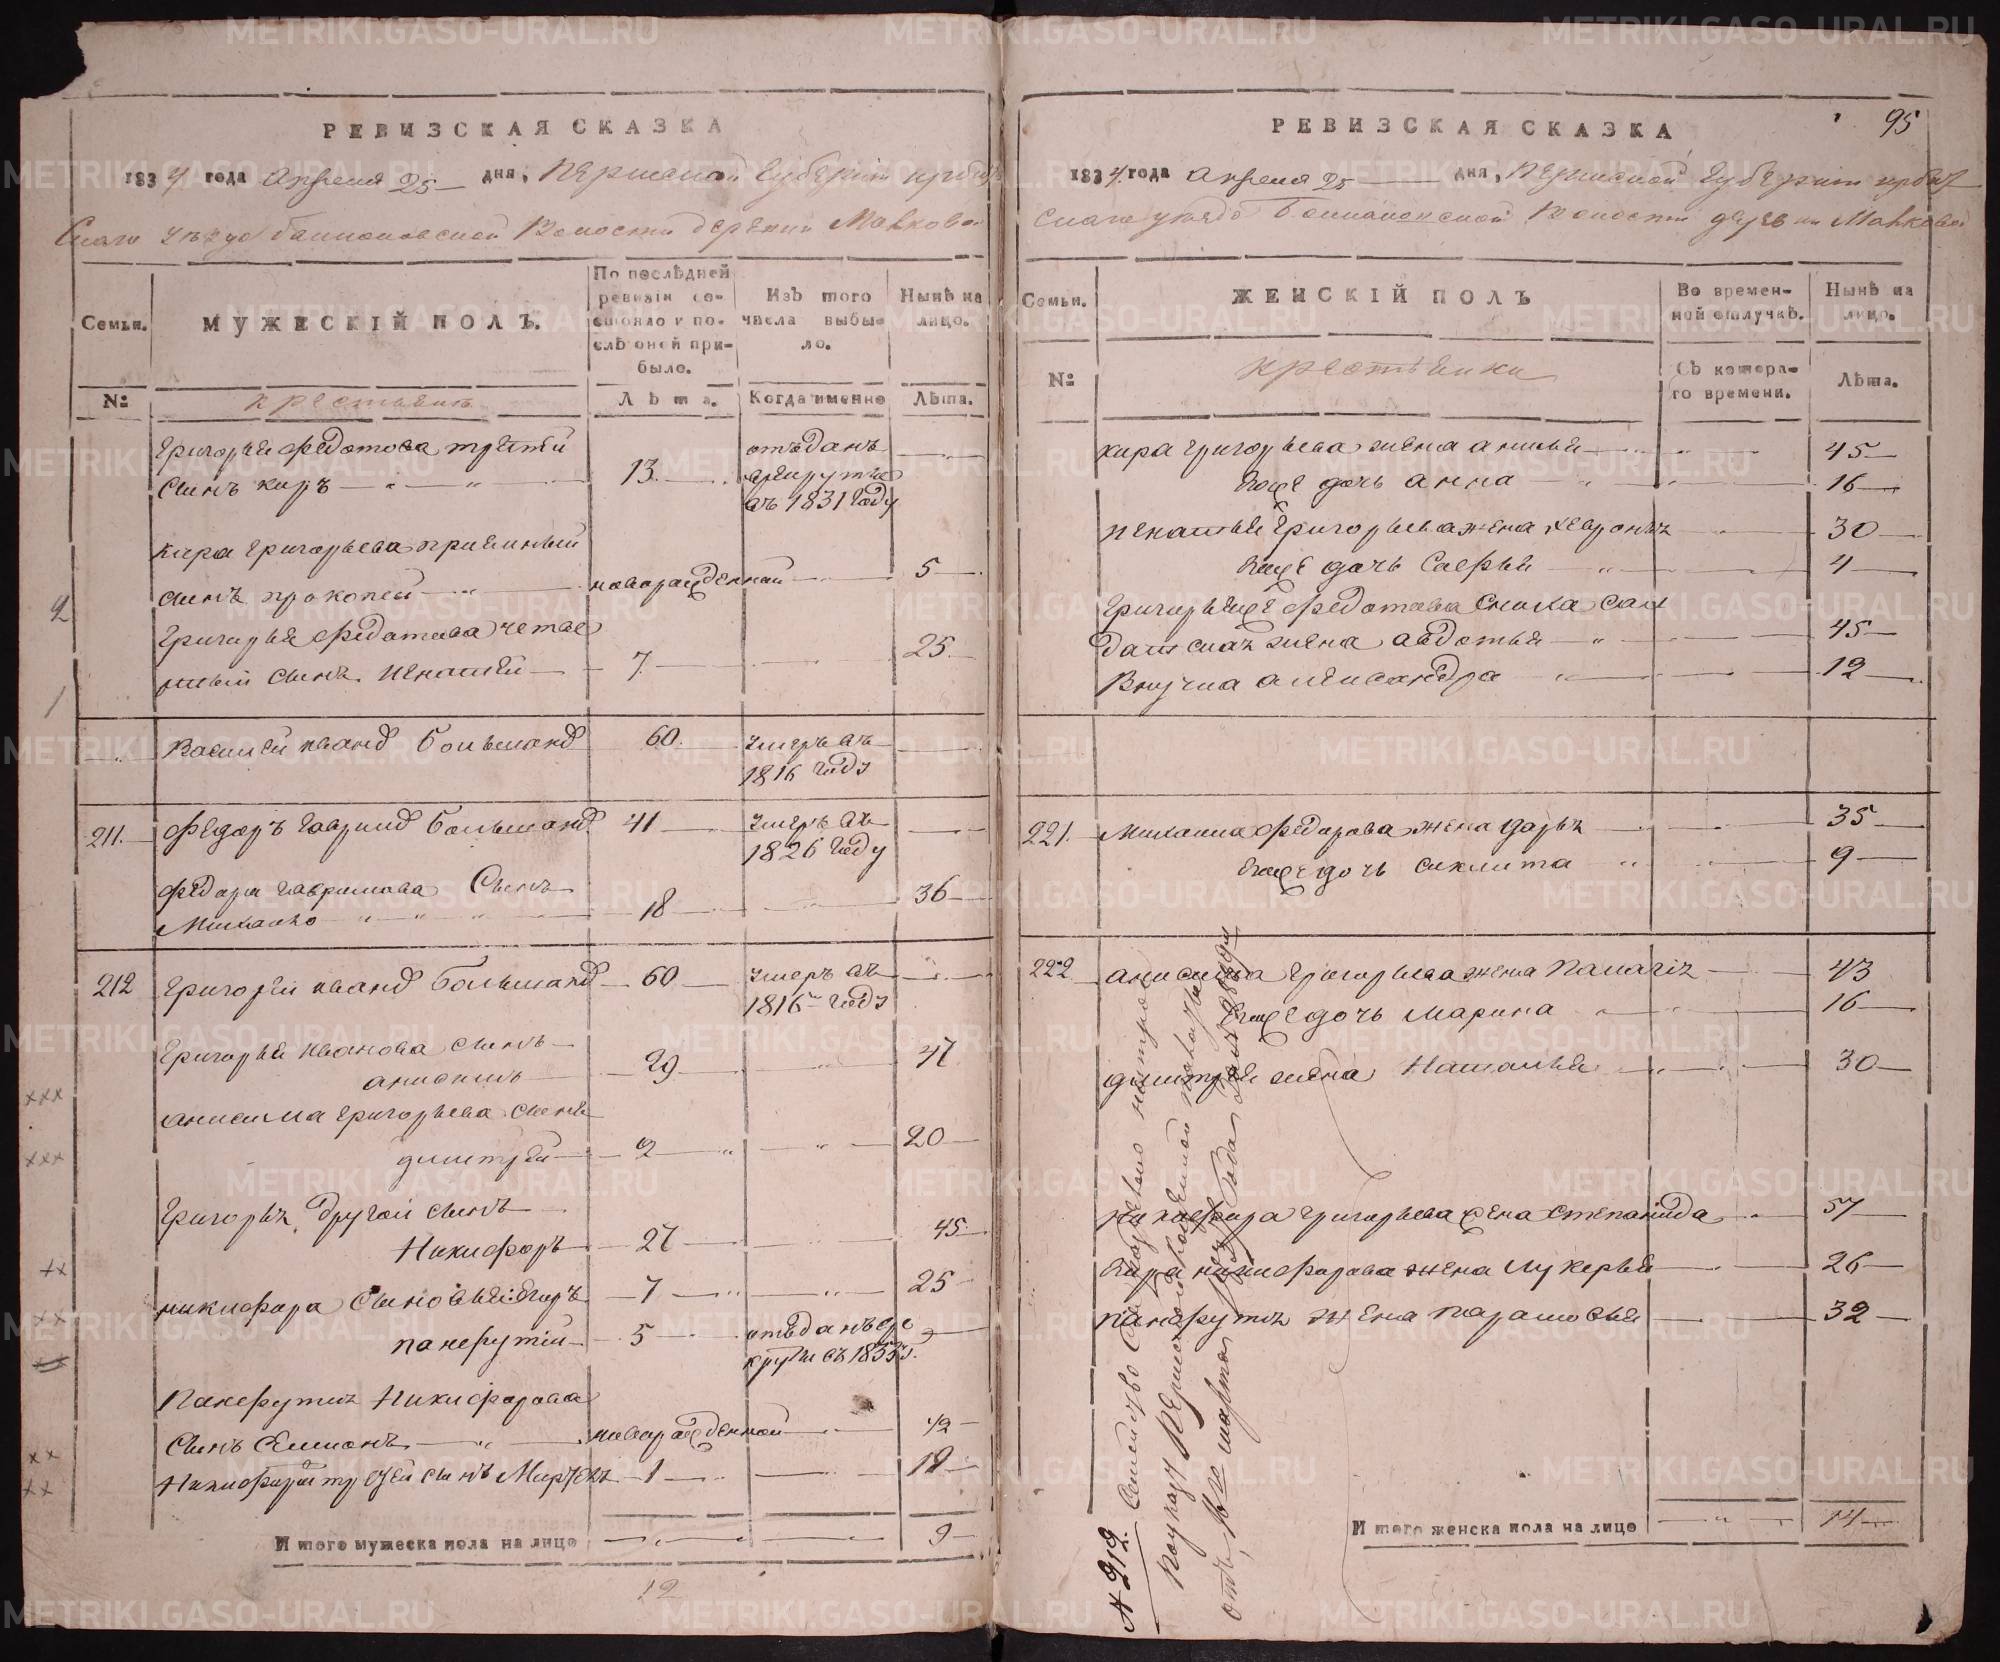 РЕВИЗСКАЯ СКАЗКА
1834 года апреля 25 дня, Пермской Губернии Ирбит
скаго уезда Волости деревни Мавковой
Семьи.
МУЖЕСКІЙ ПОЛЪ.
По послѣдней ревизіи состояло и послѣ оной прибыло.
Изъ того числа выбыло.
Нынѣ на лицо.
№
крестьяне
Лѣта.
Когда именно
Лѣта.
Григорья Федотова третий
сынъ киръ 13.
отъданъ
в рекруты
въ 1831 году
Кира Григорьева
сынъ прокопей новорожденной 5
Григорья Федотова четве
ртый сынъ 7. 25
Василей Иванов Большаков 60. умеръ въ
1816 году
211. Федоръ Гаврилов Большаков 41 умеръ въ
1826 году
Федора Гаврилова Сынъ
Михайло 18 36
212 Григорей Иванов Большаков 60 умеръ въ
1816 году
Григорья Иванова сынъ
анисимъ 29 47
анисима Григорьева сынъ
дмитрей 2 20
Григорья другой сынъ
Никифоръ 27 45
никифора Сыновья: 7 25
панфутий 5 отъданъ въ ре
круты въ 1855 г.
Панфутия Никифорова
Сынъ Семионъ новорожденной 12
Никифора третей сынъ 1 19
И того мужеска пола на лицо 9
12
95
РЕВИЗСКАЯ СКАЗКА
1834 года апреля 25 дня, Пермской Губернии Ирбит
скаго уезда Волости деревни Мавковой
Семьи.
ЖЕНСКІЙ ПОЛЪ
Во временной отлучкѣ.
Нынѣ на лицо.
№
крестьянки
Съ котораго времени.
Лѣта.
кира Григорьева жена 45
Ево дочь анна 16
Григорьева жена 30
Ево дочь Софья 4
Григорья же Федотова Сноха сол
датская жена авдотья 45
Внучка александра 12
221. Михайла Федорова жена дарья 35
Ево дочь 9
222 анисима Григорьева жена Палагия 43
Ево дочь Марина 16
дмитрея жена Наталья 30
Никифора Григорьева жена степанида 57
никифорова жена лукерья 26
панфутия жена парасковья 32
И того женска пола на лицо 14
№ 212. Семейство
по указу Пермской Казенной палаты
отъ 16 марта
METRIKI.GASO-URAL.RU